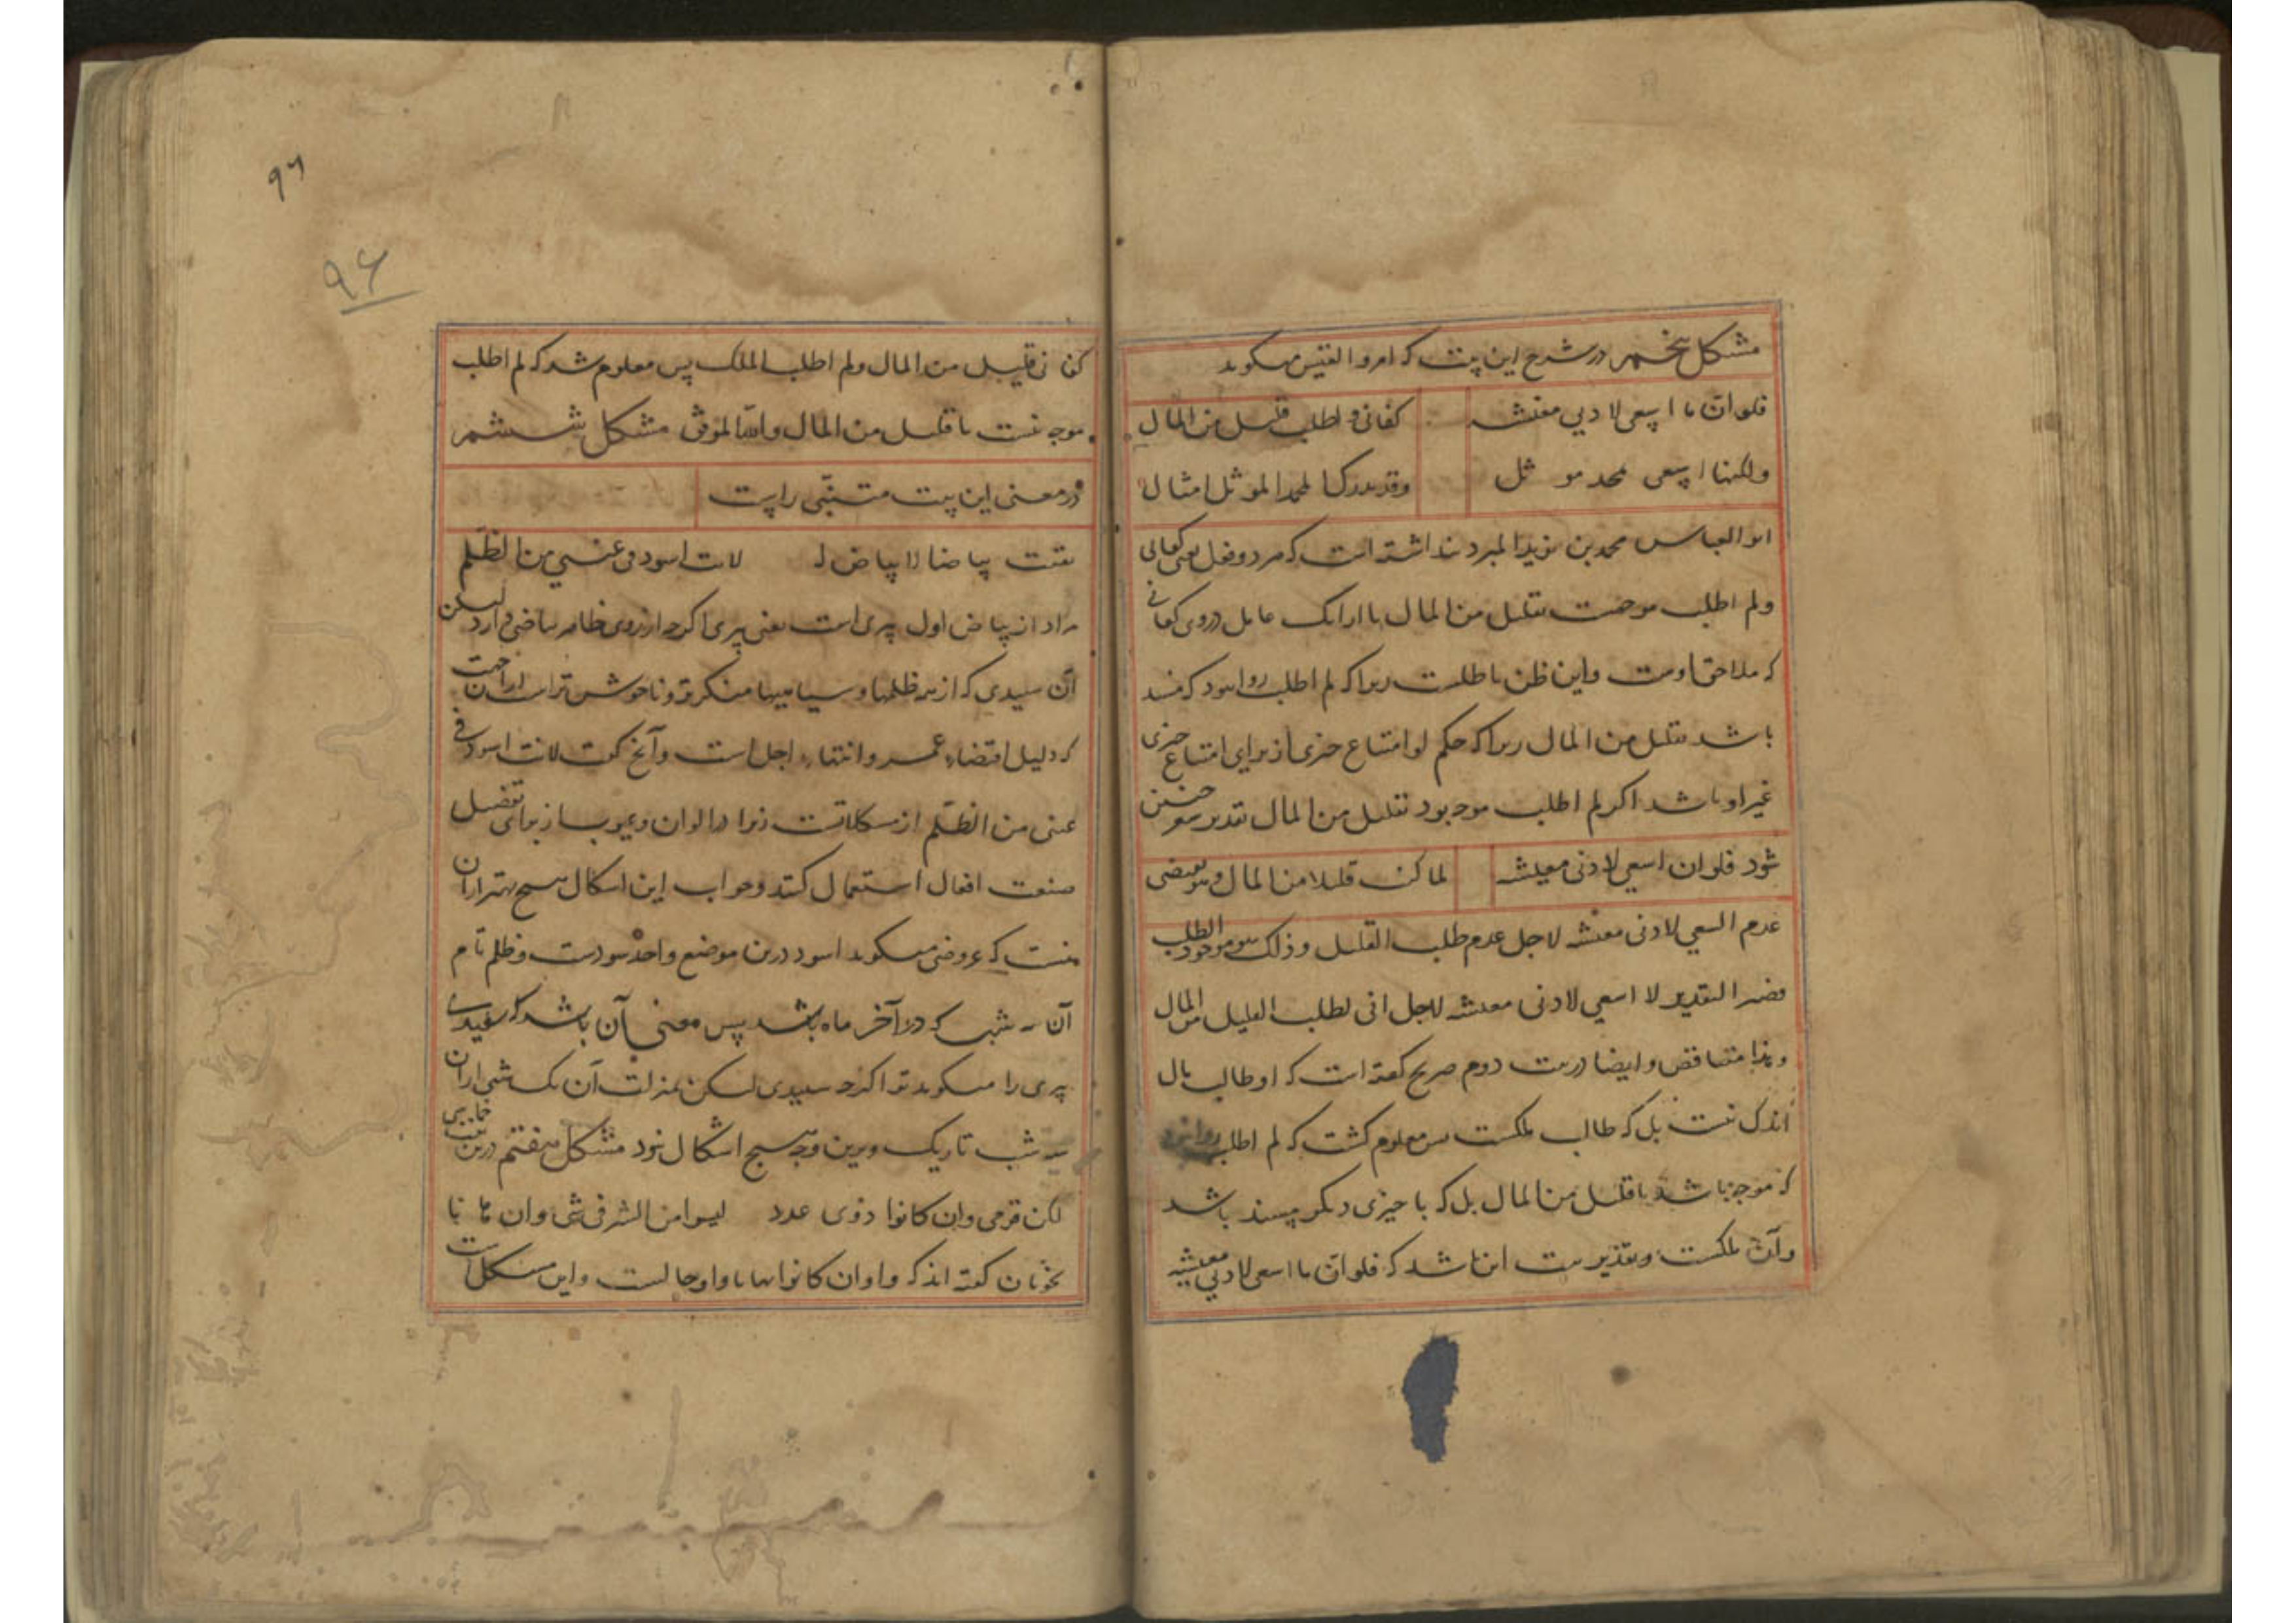 مشکل پنجم در شرح این بیت که امرو القیس میکوید
فلو ان ما اسعی لادنی معیشه کفانی و اطلب قلیل من المال
ولکنما اسعی لمجد موثل وقد یدرک المجد الموثل امثالی
ابو العباس محمد بن یزید المبرد پنداشته است که هر دو فعل یعنی کفانی
ولم اطلب موجهست بقلیل من المال با ارانک عامل دروی کفانی
که ملاحق اوست واین ظن باطلست زیرا که لم اطلب روا نبود که مسند
باشد بقلیل من المال زیرا که حکم لو امتناع چیزی از برای امتناع چیزی
غیر او باشد اکر لم اطلب موجه بود بقلیل من المال تقدیر شعر چنین
شود فلو ان اسعی لادنی معیشه لما کنت قلیلا من المال وهو یقتضی
عدم السعی لادنی معیشه لاجل عدم طلب القلیل وذلک هو موجود الطلب
التقدیر لا اسعی لادنی معیشه لاجل انی لطلب القلیل من المال
وهذا متناقض وایضا در بیت دوم صریح کفته است که او طالب مال
اندک نیست بل که طالب ملکست پس معلوم کشت که لم اطلب روا نبود
که موجه باشد باقلیل من المال بل که با چیزی دیکر مسند باشد
وآن ملکست وتقدیر بیت این باشد که فلو ان ما اسعی لادنی معیشه
۹۶
۹۶
کفانی قلیل من المال ولم اطلب الملک پس معلوم شد که لم اطلب
موجه نیست با قلیل من المال والله الموفق مشکل ششم
در معنی این بیت متنبی راست
بیاضا لا بیاض له لانت اسود فی عینی من الظلم
مراد از بیاض اول پیری است یعنی پیری اکرچه از روی ظاهر بیاضی دارد لیکن
آن سپیدی که از همه ظلمها و سیاهیها منکرتر و ناخوش تر است از آن جهت
که دلیل انقضاء عمر و انتهاء اجل است وآنچ کفت لانت اسود فی
عینی من الظلم از مشکلاتست زیرا در الوان وعیوب از برای تفضیل
صیغت افعال استعمال کنند وجواب این اشکال هیچ بهتر از آن
نیست که عروضی میکوید اسود درین موضع واحد سودست وظلم نام
آن سه شب که در آخر ماه باشد پس معنی آن باشد که سفیدی
پیری را میکوید تو اکرچه سپیدی لیکن بمنزلت آن یک شبی از آن
سه شب تاریک وبرین وجه هیچ اشکال نبود مشکل هفتم درین بیت حماسی
لکن قومی وان کانوا ذوی عدد لیسوا من الشر فی شی وان هانا
نحویان کفته اند که واو وان کانوا واو حالست واین مشکل است